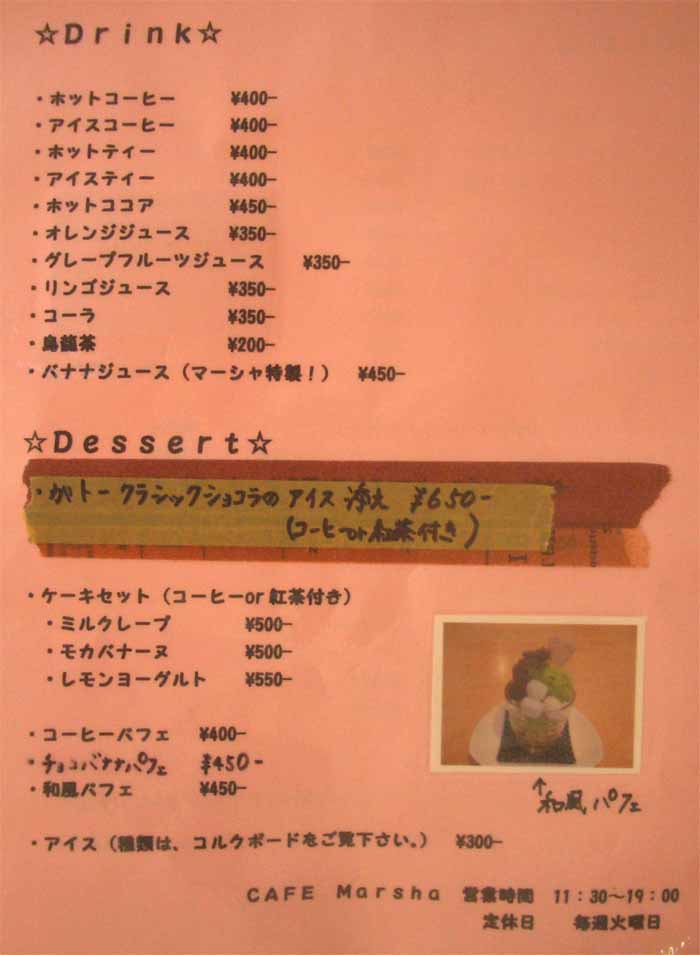 ☆Drink☆
・ホットコーヒー ¥400-
・アイスコーヒー ¥400-
・ホットティー ¥400-
・アイスティー ¥400-
・ホットココア ¥450-
・オレンジジュース ¥350-
・グレープフルーツジュース ¥350-
・リンゴジュース ¥350-
・コーラ ¥350-
・烏龍茶 ¥200-
・バナナジュース（マーシャ特製！） ¥450-
☆Dessert☆
・ガトークラシックショコラの アイス 添え ¥650-
（コーヒーor紅茶付き）
・ケーキセット（コーヒーor紅茶付き）
・ミルクレープ ¥500-
・モカバナーヌ ¥500-
・レモンヨーグルト ¥550-
・コーヒーパフェ ¥400-
・チョコバナナパフェ ¥450-
・和風パフェ ¥450-
↑
和風パフェ
・アイス（種類は、コルクボードをご覧下さい。） ¥300-
CAFE Marsha 営業時間 11：30～19：00
定休日 毎週火曜日